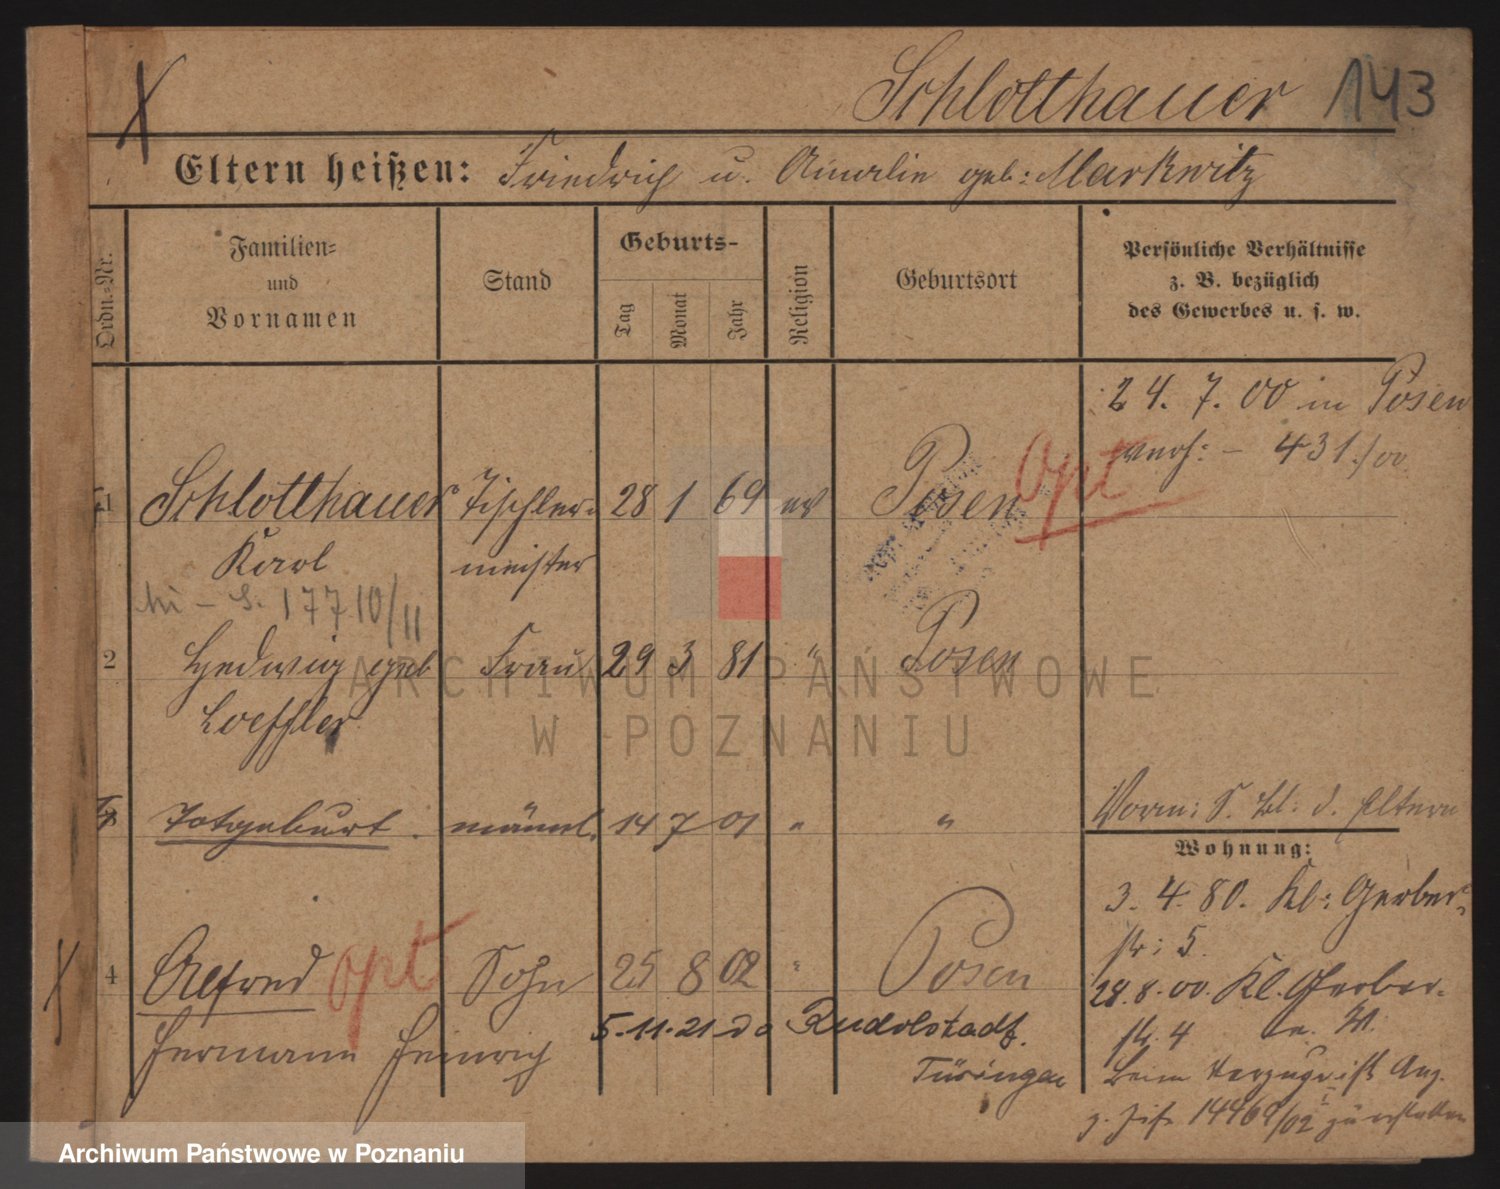 Schlotthauer 143
Eltern heißen: Friedrich u. Amalie geb: Markwitz
Ordn.-Nr.
Familien-
und
Vornamen
Stand
Geburts-
Tag
Monat
Jahr
Religion
Geburtsort
Persönliche Verhältnisse
z. B. bezüglich
des Gewerbes u. s. w.
24. 7. 00 in Posen
verh: – 431/00
1 Schlotthauer Tischler- 28 1 69 ev Posen opt
Karl meister
17710/11
2 Hedwig geb Frau 29 3 81 " Posen
Loeffler
Totgeburt. männl. 14 7 01 " "
Vorm: S. Bl: d. Eltern
Wohnung:
3. 4. 80. Kl: Gerber-
str: 5.
4 Alfred opt Sohn 25 8 02 " Posen
28. 8. 00. Kl. Gerber-
Hermann Heinrich
5. 11. 21 do Rudolstadt.
str. 4
Türingen
Beim Verzuge ist Anz.
z. 14469/02 zu erstatten
ARCHIWUM PAŃSTWOWE
W POZNANIU
Archiwum Państwowe w Poznaniu